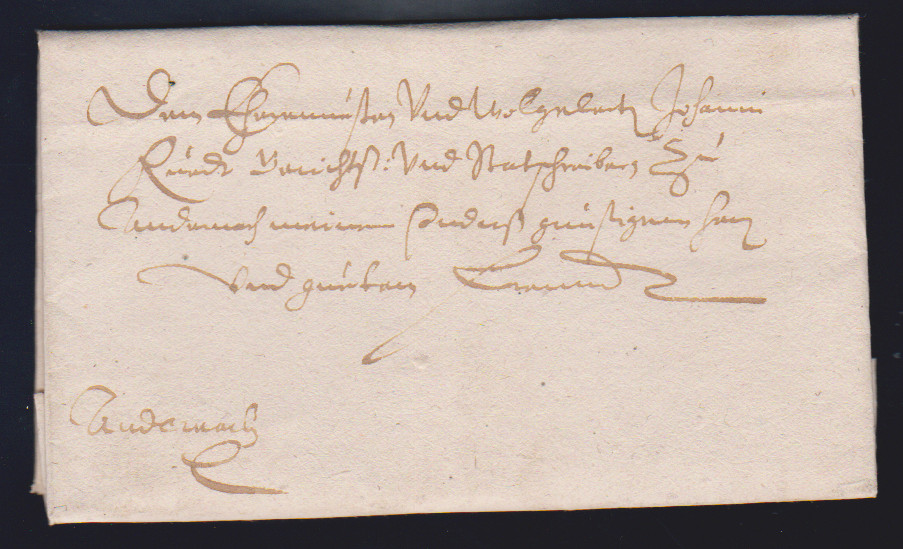 Dem Ehrnuesten Vnd Wolgelertt Johann
Ruedt Gerichtß: Vnd Statschreibern Zu
Andernach meinem sonderß günstigenn Herrn
Vnd gueten Freund
Andernach